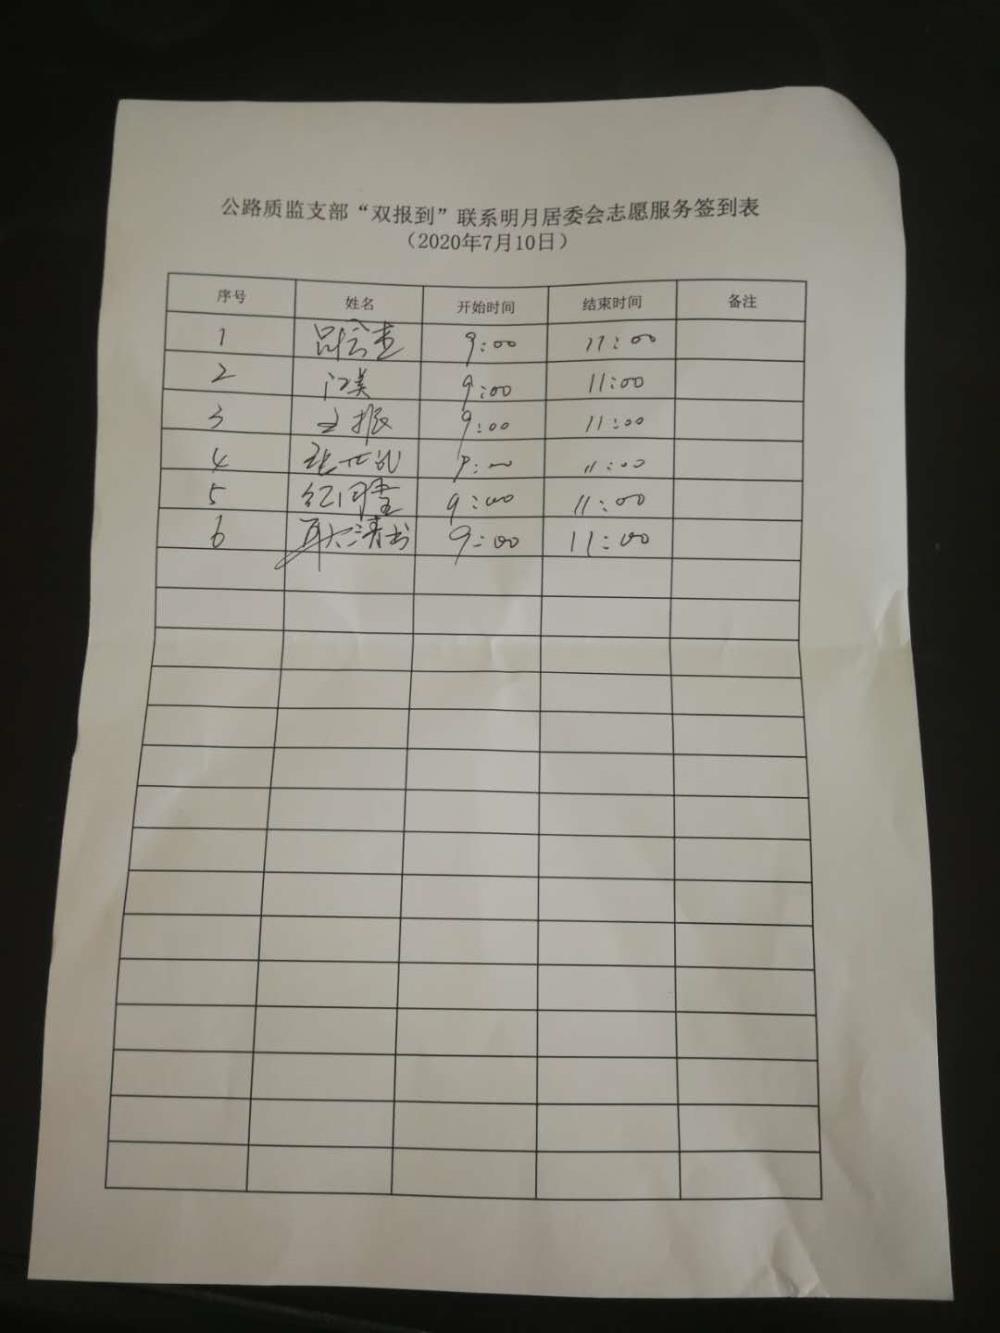 公路质监支部“双报到”联系明月居委会志愿服务签到表
（2020年7月10日）
序号 姓名 开始时间 结束时间 备注
1 9:00 11:00
2 江美 9:00 11:00
3 王振 9:00 11:00
4 9:00 11:00
5 9:00 11:00
6 9:00 11:00